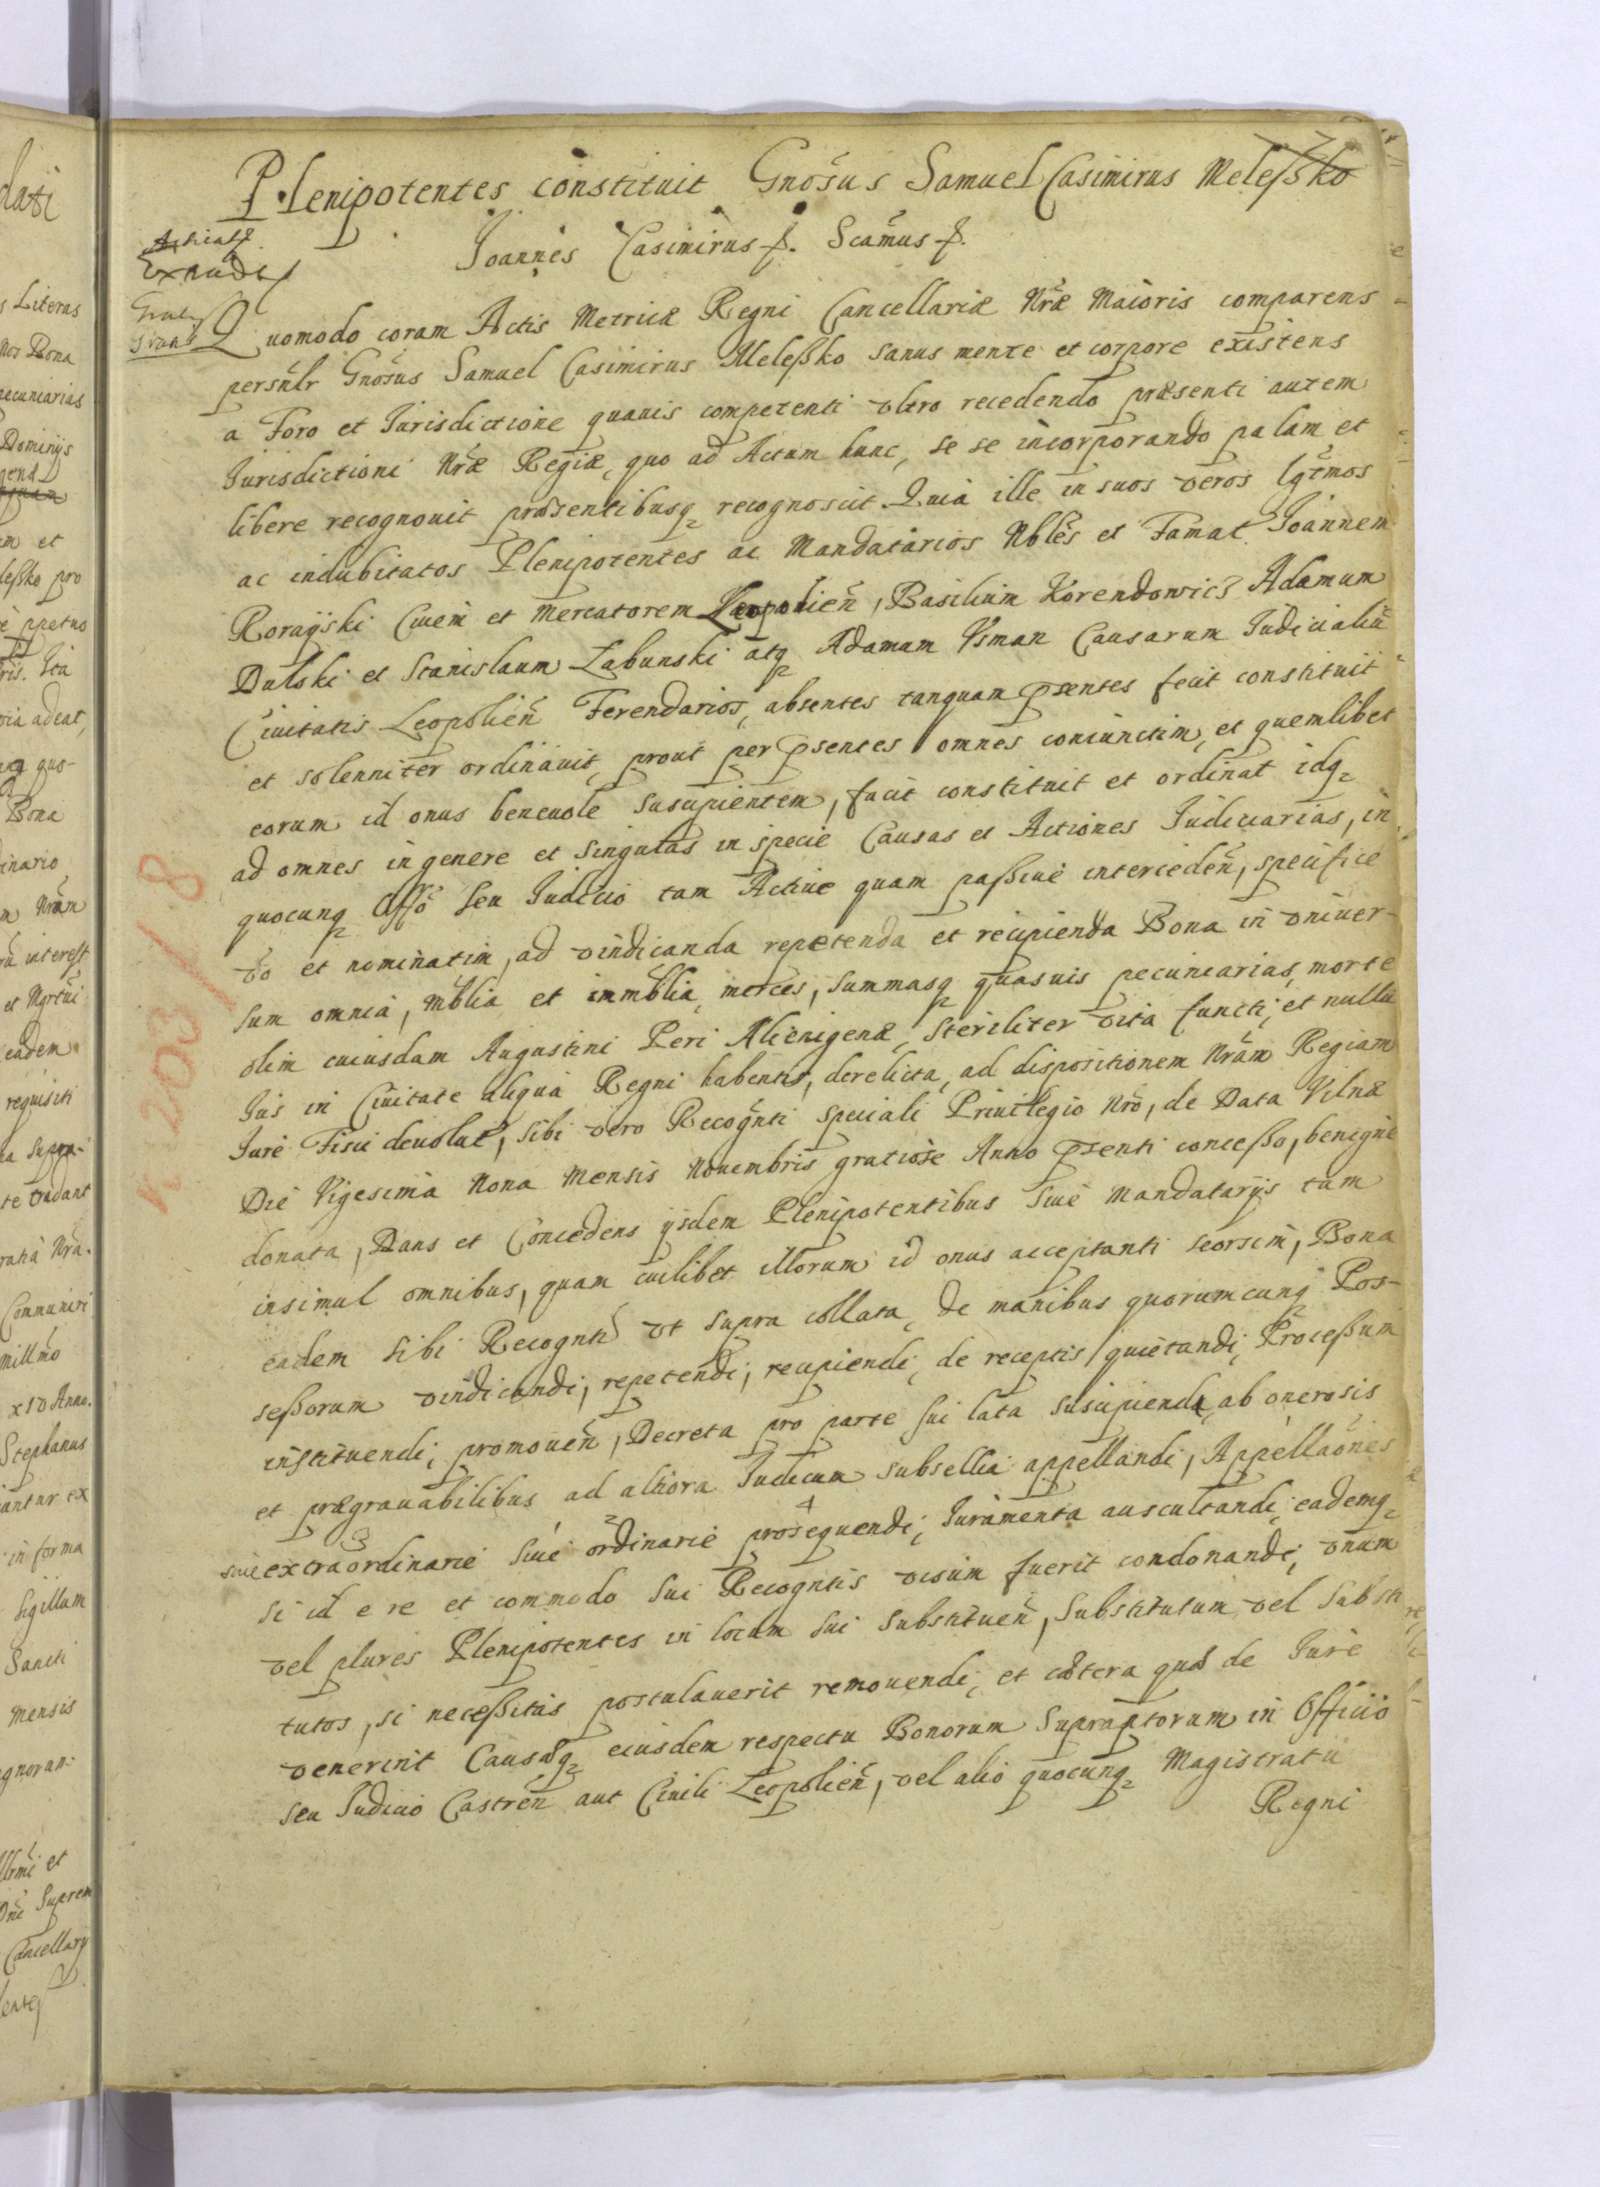 Plenipotentes constituit Gnosus Samuel Casimirus Meleßko
Joannes Casimirus f. Scamus f.
Quomodo coram Actis Metricæ Regni Cancellariæ Nræ Maioris comparens
persnlr Gnosus Samuel Casimirus Meleßko sanus mente et corpore existens
a Foro et Jurisdictione quauis competenti vltro recedendo præsenti autem
Jurisdictioni Nræ Regiæ, quo ad Actum hunc, se se incorporando palam et
libere recognouit præsentibusq recognoscit. Quia ille in suos veros lgtmos
ac indubitatos Plenipotentes ac Mandatarios Nbles et Famat. Joannem
Rorayski Ciuem et Mercatorem Leopolien, Basilium Korendowicz Adamum
Dulski et Stanislaum Labunski atq Adamum Vsman Causarum Judicialiu
Ciuitatis Leopolien Ferendarios, absentes tanquam psentes fecit constituit
et solenniter ordinauit, prout per psentes omnes coniunctim, et quemlibet
eorum id onus beneuole suscipientem, facit constituit et ordinat idq
ad omnes in genere et singulas in specie Causas et Actiones Judiciarias, in
quocunq Offo seu Judicio tam Actiue quam paßiue interceden, specifice
vo et nominatim, ad vindicanda repetenda et recipienda Bona in vniuer-
sum omnia, mblia et immblia, merces, summasq quasuis pecuniarias, morte
olim cuiusdam Augustini Peri Alienigenæ, steriliter vita functi, et nullu
Jus in Ciuitate aliqua Regni habentis, derelicta, ad dispositionem Nram Regiam
Jure Fisci deuoluta, sibi vero Recognti speciali Priuilegio Nro, de Data Vilnæ
Die Vigesima Nona Mensis Nouembris gratiose Anno psenti conceßo, benigne
donata, Dans et Concedens ijsdem Plenipotentibus siue Mandatarijs tam
insimul omnibus, quam cuilibet illorum id onus acceptanti seorsim, Bona
eadem sibi Recognti vt supra collata, de manibus quorumcunq Pos-
seßorum vindicandi, repetendi, recipiendi, de receptis quietandi, Proceßum
instituendi, promouen, Decreta pro parte sui lata suscipienda, ab onerosis
et prægrauabilibus ad altiora Judicum subsellia appellandi, Appellaones
siue extraordinarie siue ordinarie prosequendi, Juramenta auscultandi, eademq
3 2 4
si id e re et commodo sui Recogntis visum fuerit condonandi, vnum
vel plures Plenipotentes in locum sui substituen, substitutum vel substi
tutos, si neceßitas postulauerit remouendi, et cætera quæ de Jure
venerint Causæq eiusdem respectu Bonorum supraptorum in Officio
seu Judicio Castren aut Ciuili Leopolien, vel alio quocunq Magistratu
Regni
R 203/18